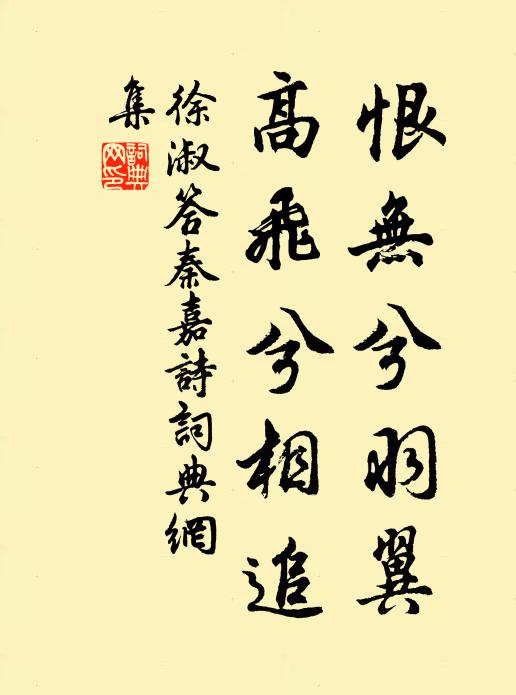 恨無兮羽翼
高飛兮相追
徐淑答秦嘉詩詞典網
集
詞典網印